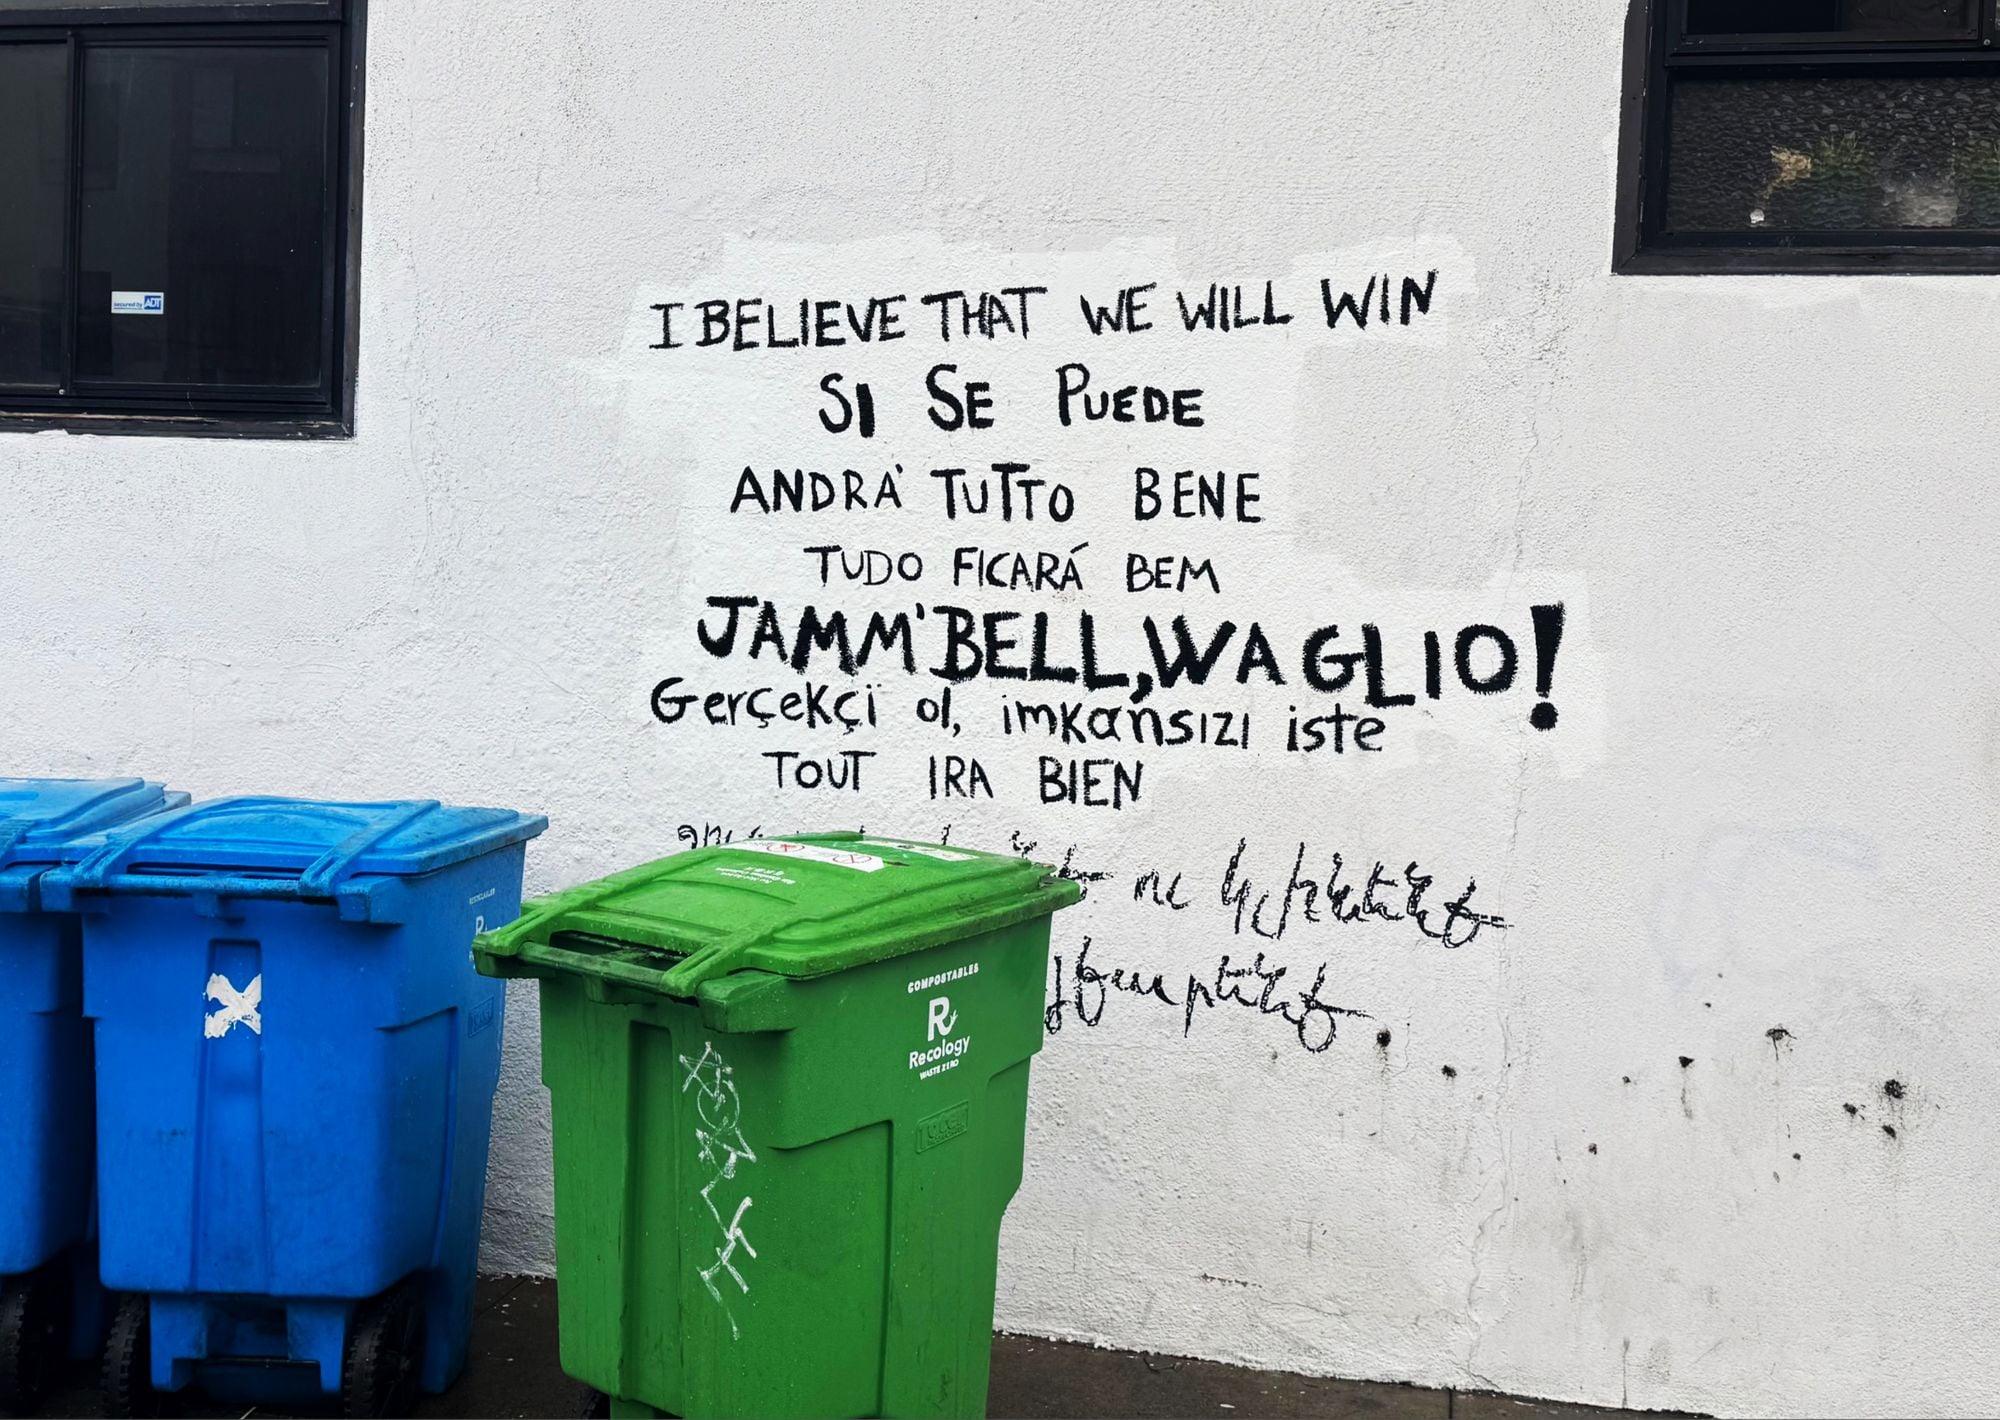 secured by ADT
I BELIEVE THAT WE WILL WIN
SI SE PUEDE
ANDRA' TUTTO BENE
TUDO FICARÁ BEM
JAMM'BELL,WAGLIO!
Gerçekçi ol, imkansızı iste
TOUT IRA BIEN
COMPOSTABLES
R
Recology
WASTE ZERO